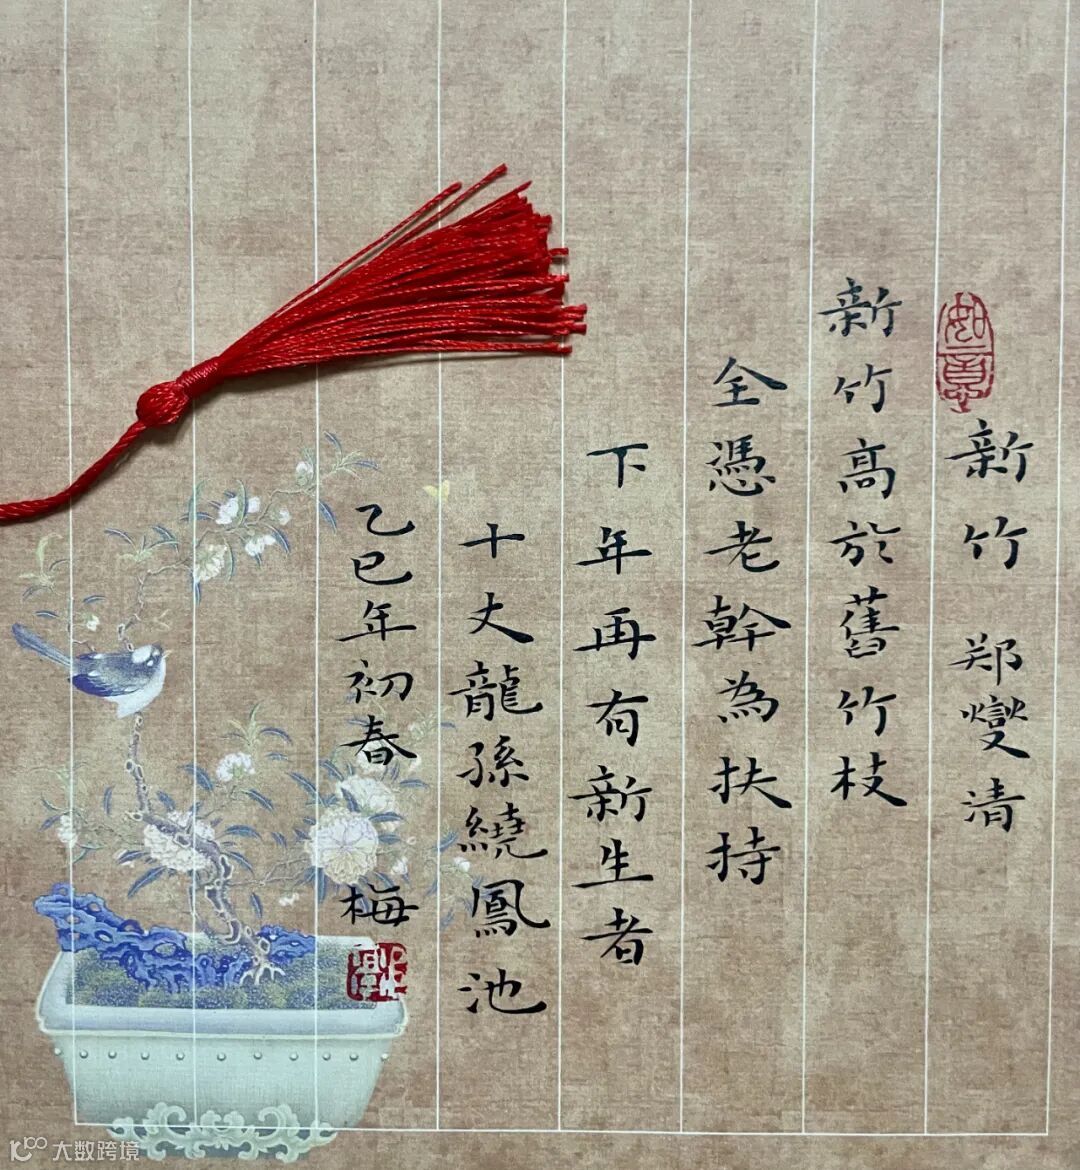 如意
新竹 郑燮 清
新竹高於舊竹枝
全憑老幹為扶持
下年再有新生者
十丈龍孫繞鳳池
乙巳年初春 梅
大数跨境